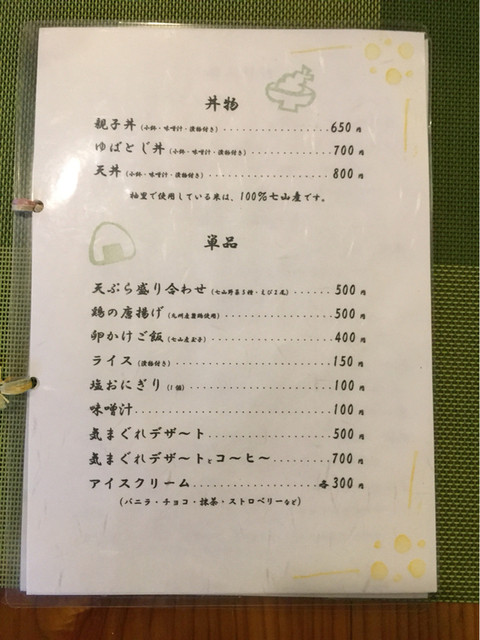 丼物
親子丼(小鉢・味噌汁・漬物付き)......................650円
ゆばとじ丼(小鉢・味噌汁・漬物付き)................700円
天丼(小鉢・味噌汁・漬物付き)........................800円
柚里で使用している米は、100%七山産です。
単品
天ぷら盛り合わせ(七山野菜5種・えび2尾).......500円
鶏の唐揚げ(九州産若鶏使用)......................500円
卵かけご飯(七山産玉子)............................400円
ライス(漬物付き)......................................150円
塩おにぎり(1個).......................................100円
味噌汁...................................................100円
気まぐれデザート.....................................500円
気まぐれデザートとコーヒー.......................700円
アイスクリーム......................................各300円
(バニラ・チョコ・抹茶・ストロベリーなど)